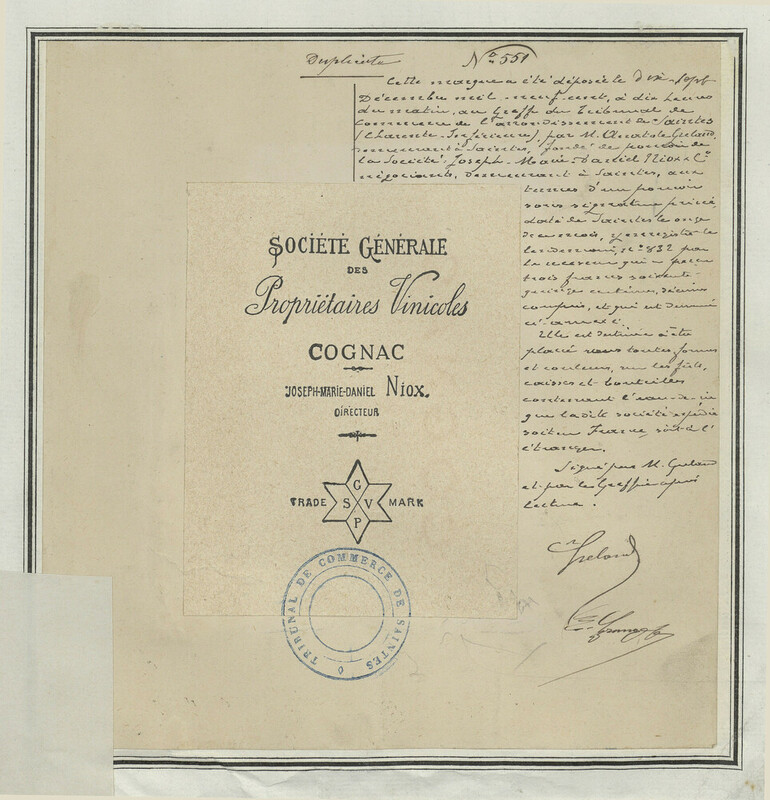 Duplicata
No 551
Cette marque a été déposée le dix-sept
Décembre mil neuf cent, à dix heures
du matin, au Greffe du Tribunal de
Commerce de l'arrondissement de Saintes
(Charente-Inférieure), par M. Anatole Greland,
demeurant à Saintes, fondé de pouvoir de
la Société Joseph-Marie-Daniel Niox & Cie
négociants, demeurant à Saintes, aux
termes d'un pouvoir
sous signature privée,
daté de Saintes le onze
de ce mois, y enregistré le
lendemain, no 832 par
le receveur qui a perçu
trois francs soixante-
quinze centimes, décimes
compris, et qui est demeuré
ci-annexé.
Elle est destinée à être
placée sous toutes formes
et couleurs, sur les fûts,
caisses et bouteilles
contenant l'eau-de-vie
que ladite société expédie
soit en France, soit à l'
étranger.
Signé par M. Greland
et par le Greffier après
lecture.
SOCIÉTÉ GÉNÉRALE
DES
Propriétaires Vinicoles
COGNAC
JOSEPH-MARIE-DANIEL NIOX.
DIRECTEUR
TRADE G S V P MARK
TRIBUNAL DE COMMERCE DE SAINTES
Greland